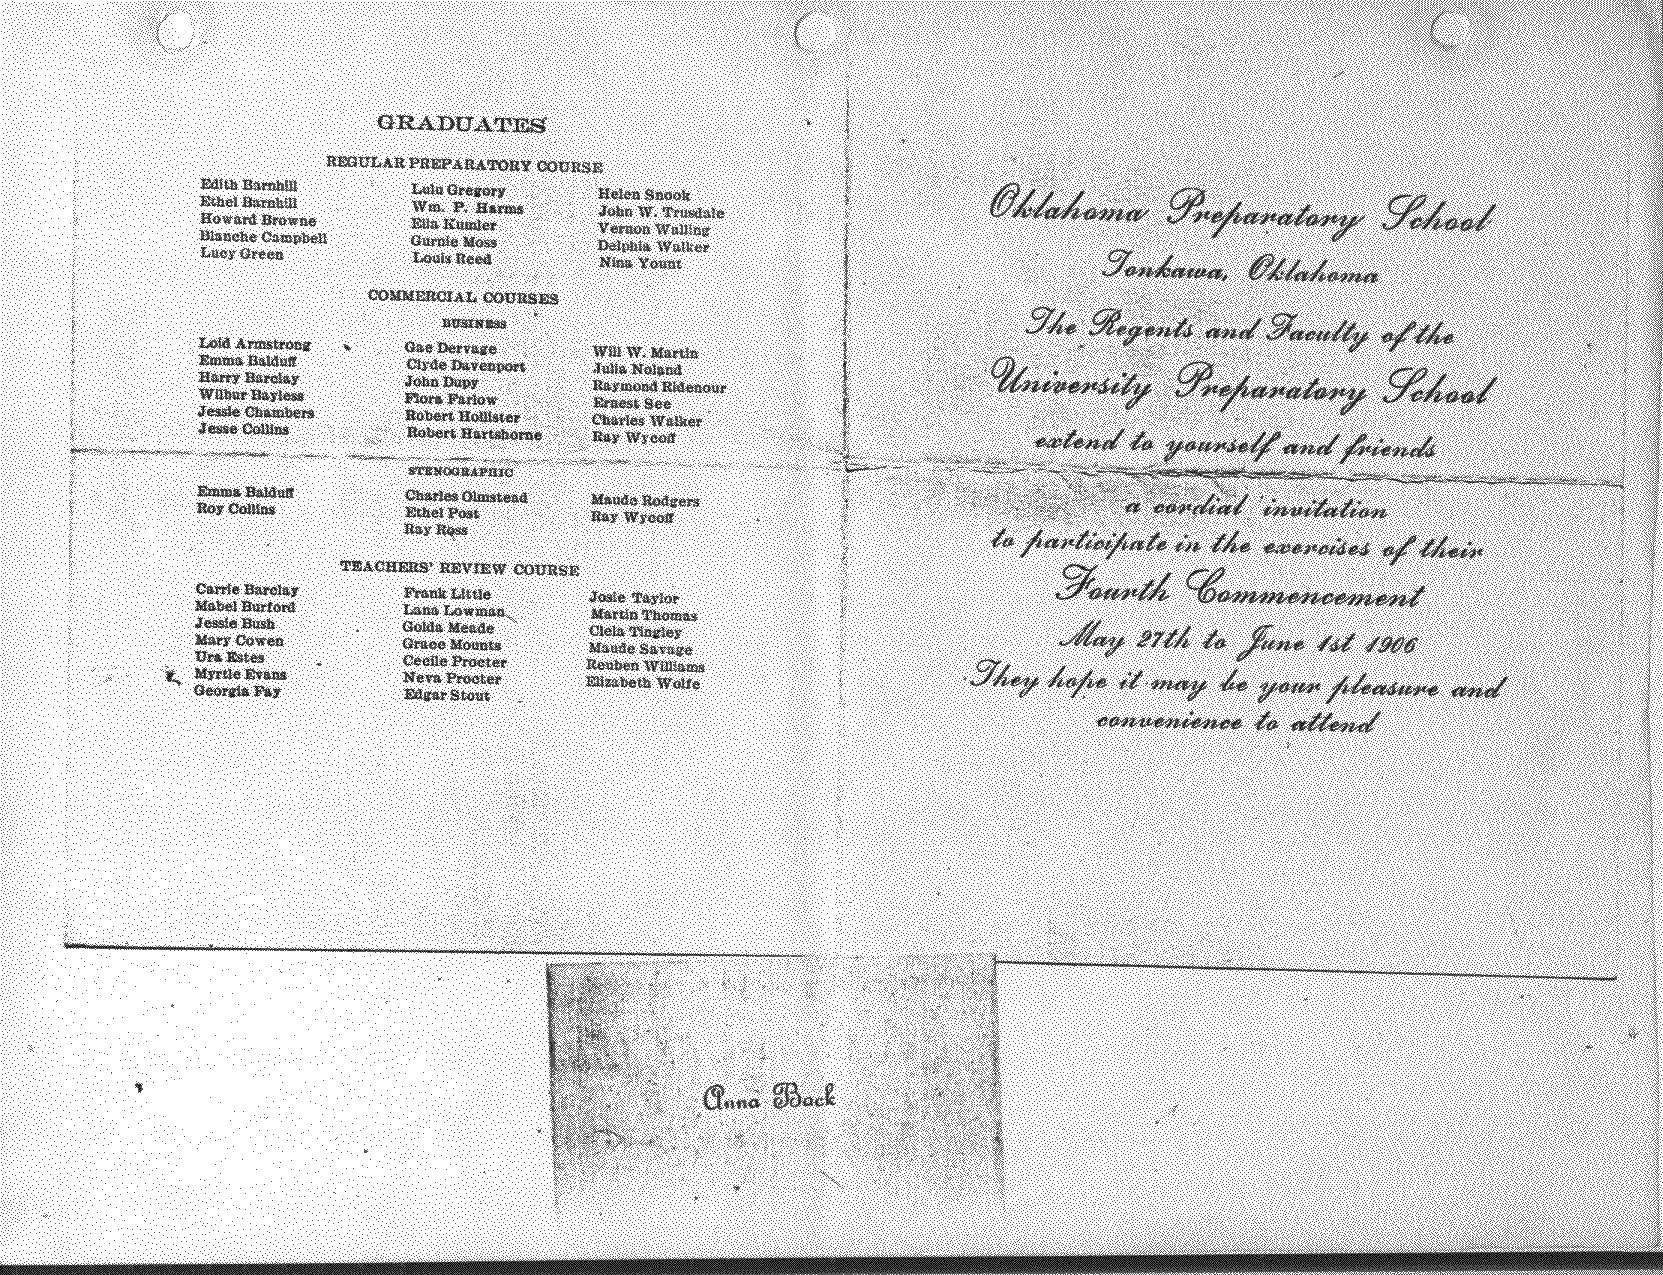 GRADUATES
REGULAR PREPARATORY COURSE
Edith Barnhill
Ethel Barnhill
Howard Browne
Blanche Campbell
Lucy Green
Lulu Gregory
Wm. P. Harms
Ella Kumler
Gurnie Moss
Louis Reed
Helen Snook
John W. Trusdale
Vernon Walling
Delphia Walker
Nina Yount
COMMERCIAL COURSES
BUSINESS
Loid Armstrong
Emma Balduff
Harry Barclay
Wilbur Bayless
Jessie Chambers
Jesse Collins
Gae Dervage
Clyde Davenport
John Dupy
Flora Farlow
Robert Hollister
Robert Hartshorne
Will W. Martin
Julia Noland
Raymond Ridenour
Ernest See
Charles Walker
Ray Wycoff
STENOGRAPHIC
Emma Balduff
Roy Collins
Charles Olmstead
Ethel Post
Ray Ross
Maude Rodgers
Ray Wycoff
TEACHERS' REVIEW COURSE
Carrie Barclay
Mabel Burford
Jessie Bush
Mary Cowen
Ura Estes
Myrtle Evans
Georgia Fay
Frank Little
Lana Lowman
Golda Meade
Grace Mounts
Cecile Procter
Neva Procter
Edgar Stout
Josie Taylor
Martin Thomas
Clela Tingley
Maude Savage
Reuben Williams
Elizabeth Wolfe
Oklahoma Preparatory School
Tonkawa, Oklahoma
The Regents and Faculty of the
University Preparatory School
extend to yourself and friends
a cordial invitation
to participate in the exercises of their
Fourth Commencement
May 27th to June 1st 1906
They hope it may be your pleasure and
convenience to attend
Anna Back